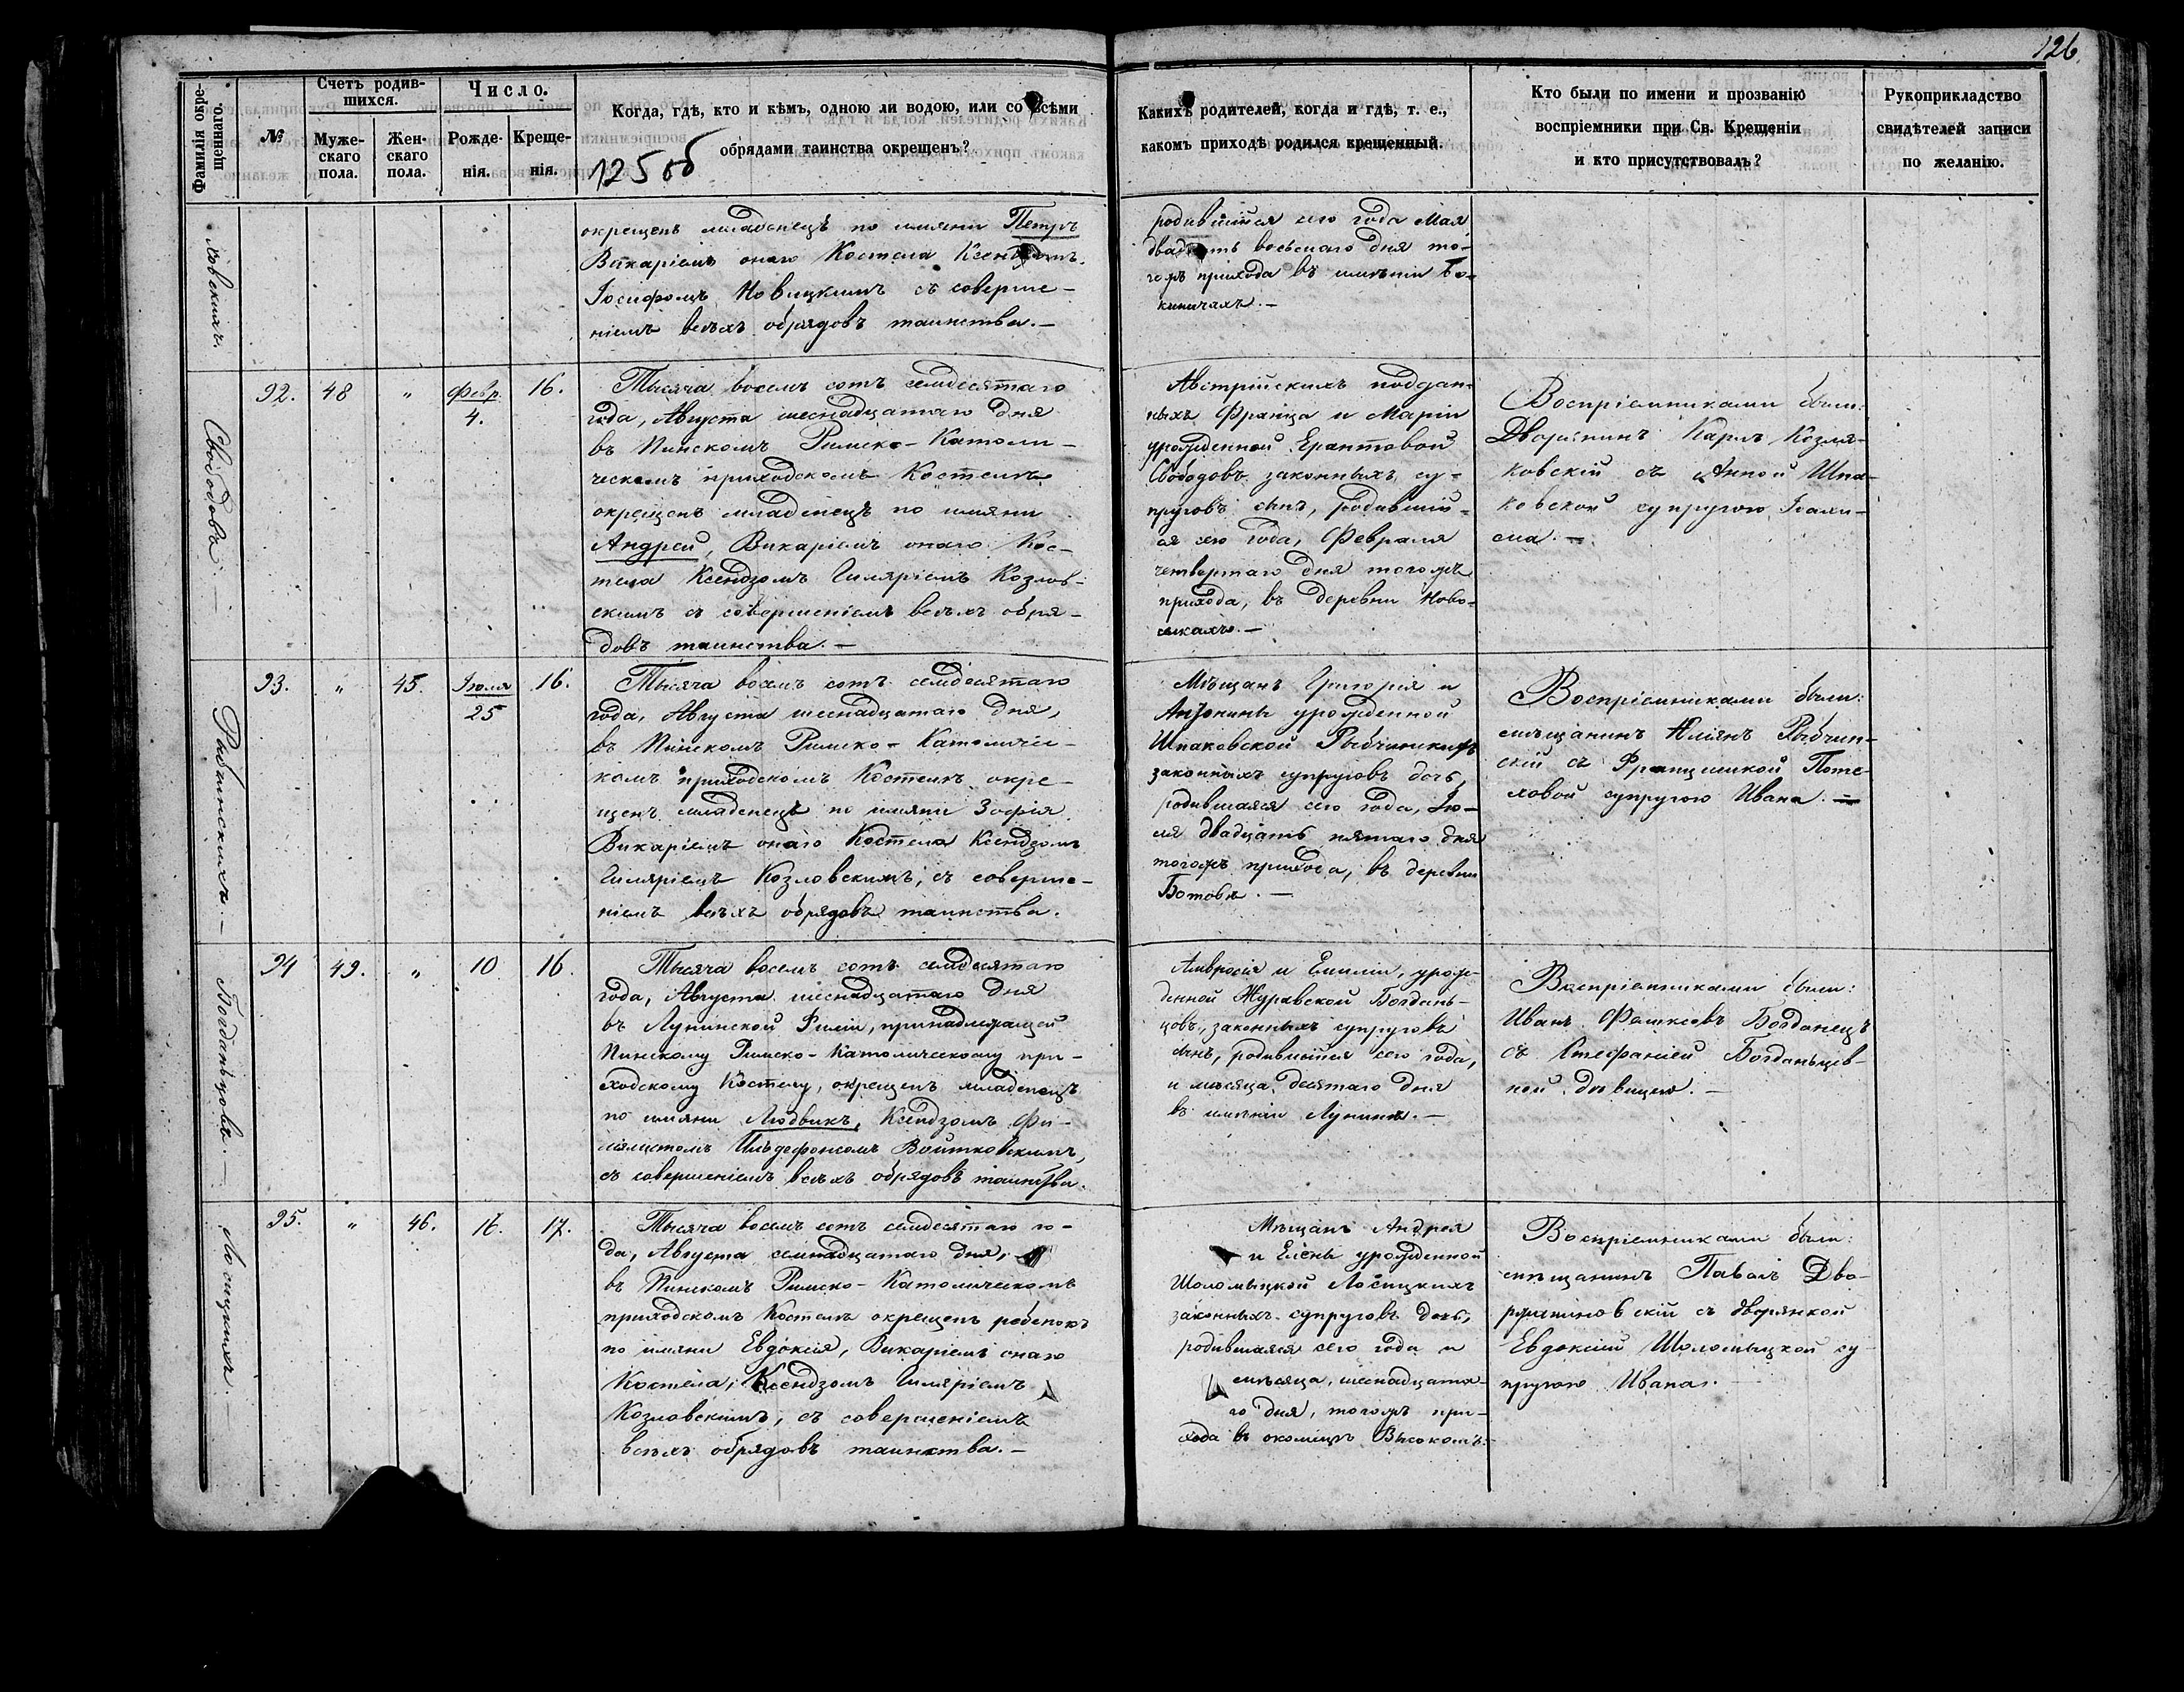 126.
Фамилія окре-
щеннаго.
№
Счетъ родив-
шихся.
Муже-
скаго
пола.
Жен-
скаго
пола.
Число.
Рожде-
нія.
Креще-
нія.
Когда, гдѣ, кто и кѣмъ, одною ли водою, или со всѣми
обрядами таинства окрещенъ?
125 об
Какихъ родителей, когда и гдѣ, т. е.,
какомъ приходѣ родился крещенный.
Кто были по имени и прозванію
воспріемники при Св. Крещеніи
и кто присутствовалъ?
Рукоприкладство
свидѣтелей записи
по желанію.
окрещенъ младенецъ по имяни Петръ
Викаріемъ онаго Костела Ксендзомъ
Іосифомъ Новицкимъ съ соверше-
ніемъ всѣхъ обрядовъ таинства.—
родившійся сего года Мая
двадцать восьмаго дня то-
гожъ прихода въ имѣніи
Свободовъ.—
92.
48
"
Февр.
4.
16.
Тысяча восемъ сотъ семдесятаго
года, Августа шеснадцатаго дня
въ Пинскомъ Римско-Католи-
ческомъ приходскомъ Костелѣ
окрещенъ младенецъ по имяни
Андрей, Викаріемъ онаго Кос-
тела Ксендзомъ Гиляріемъ Козлов-
скимъ съ совершеніемъ всѣхъ обря-
довъ таинства.—
Австрійскихъ поддан-
ныхъ Франца и Маріи
урожденной
Свободовъ законныхъ су-
пруговъ сынъ, родившій-
ся сего года, Февраля
четвертаго дня тогожъ
прихода, въ деревни Ново-
селкахъ.—
Воспріемниками были:
Дворянинъ Карлъ Козля-
ковскій съ Анной Шпа-
ковской супругою
Рыбчинскихъ.—
93.
"
45.
Іюля
25
16.
Тысяча восемъ сотъ семдесятаго
года, Августа шеснадцатаго дня,
въ Пинскомъ Римско-Католичес-
комъ приходскомъ Костелѣ окре-
щенъ младенецъ по имяни Зофія
Викаріемъ онаго Костела Ксендзомъ
Гиляріемъ Козловскимъ, съ соверше-
ніемъ всѣхъ обрядовъ таинства.
Мѣщанъ Григорія и
Антонины урожденной
Шпаковской Рыбчинскихъ
законныхъ супруговъ дочь,
родившаяся сего года, Ію-
ля двадцать пятаго дня
тогожъ прихода, въ деревни
Ботовѣ.—
Воспріемниками были:
мѣщанинъ Юліянъ Рыбчин-
скій съ Францишкой Поте-
ховой супругою Ивана.—
Богданьцовъ.
94
49.
"
10
16.
Тысяча восемъ сотъ семдесятаго
года, Августа шеснадцатаго дня
въ Лунинской Филіи, принадлежащей
Пинскому Римско-Католическому при-
ходскому Костелу, окрещенъ младенецъ
по имяни Людвикъ, Ксендзомъ Фи-
лялистомъ Ильдефонсомъ Войтковскимъ,
съ совершеніемъ всѣхъ обрядовъ таинства.
Амвросія и Емиліи, урож-
денной Журавской Богдань-
цовъ, законныхъ супруговъ
сынъ, родившійся сего года,
и мѣсяца десятаго дня
въ имѣніи Лунинѣ.—
Воспріемниками были:
Иванъ Богданецъ
съ Стефаніей Богданьцев-
ной дѣвицею.—
Лосицкихъ.
95.
"
46.
16.
17.
Тысяча восемъ сотъ семдесятаго го-
да, Августа семнадцатаго дня,
въ Пинскомъ Римско-Католическомъ
приходскомъ Костелѣ окрещенъ ребенокъ
по имяни Евдокія, Викаріемъ онаго
Костела, Ксендзомъ Гиляріемъ
Козловскимъ, съ совершеніемъ
всѣхъ обрядовъ таинства.—
Мѣщанъ Андрея
и Елены урожденной
Шоломыцкой Лосицкихъ
законныхъ супруговъ дочь,
родившаяся сего года и
мѣсяца, шеснадцата-
го дня, тогожъ при-
хода въ околицѣ Высокомъ.
Воспріемниками были:
мѣщанинъ Павелъ
съ дворянкой
Евдокіей Шоломыцкой су-
пругою Ивана.